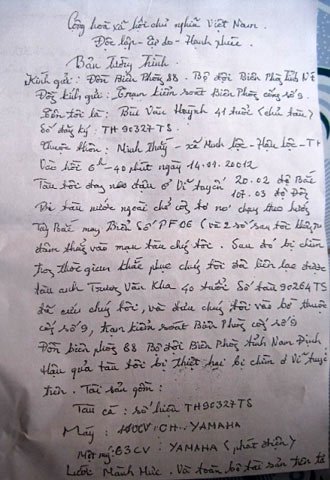 Cộng hoà xã hội chủ nghĩa Việt Nam.
Độc lập - tự do - Hạnh phúc.
Bản Tường Trình.
Kính gửi: Đồn Biên Phòng 88. Bộ đội Biên Phòng tỉnh NĐ
Đồng kính gửi: Trạm kiểm soát Biên Phòng cống số 9.
tên tôi là: Bùi Văn Huỳnh 41 tuổi (chủ tàu)
Số đăng ký: TH 90327 TS
Thuộc thôn: Minh Thắng - xã Minh lộc - Hậu lộc - TH
Vào hồi 6h - 40 phút ngày 14.01.20012
Tàu tôi đang neo đậu ở Vĩ tuyến 20.02 độ Bắc
107.03 độ Đông
tàu nước ngoài chở cọc to nó chạy theo hướng
Tây Bắc mang Biển Số PF 06 (và 2 số sau tôi không
đâm thẳng vào mạn tàu chúng tôi. Sau đó bị chìm
trong thời gian khắc phục chúng tôi đã liên lạc được
tàu anh Trương Văn Kha 40 tuổi Số tàu 90264 TS
đã cứu chúng tôi, và đưa chúng tôi vào bờ thuộc
cống số 9, trạm kiểm soát Biên Phòng cống số 9
Đồn biên phòng 88 Bộ đội Biên Phòng tỉnh Nam Định
Hậu quả tàu tôi bị thiệt hại bị chìm ở Vĩ tuyến
trên. Tài sản gồm:
Tàu cá: số hiệu TH 90327 TS
Máy: CH. YAMAHA
Một máy 63CV: YAMAHA (phát điện)
Lưới Mành Mực. Và toàn bộ tài sản trên tà